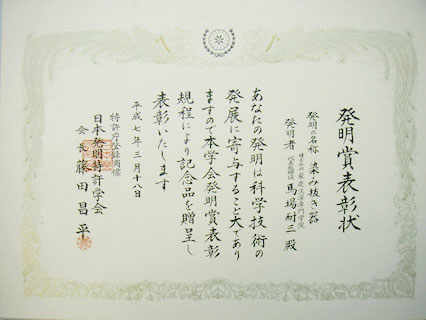 発明賞表彰状
発明の名称 染み抜き器
発明者 代表取締役 馬場耐三 殿
あなたの発明は科学技術の
発展に寄与すること大であり
ますので本学会発明賞表彰
規程により記念品を贈呈し
表彰いたします
平成七年三月十八日
特許庁登録商標
日本発明特許学会
会長 藤田昌平